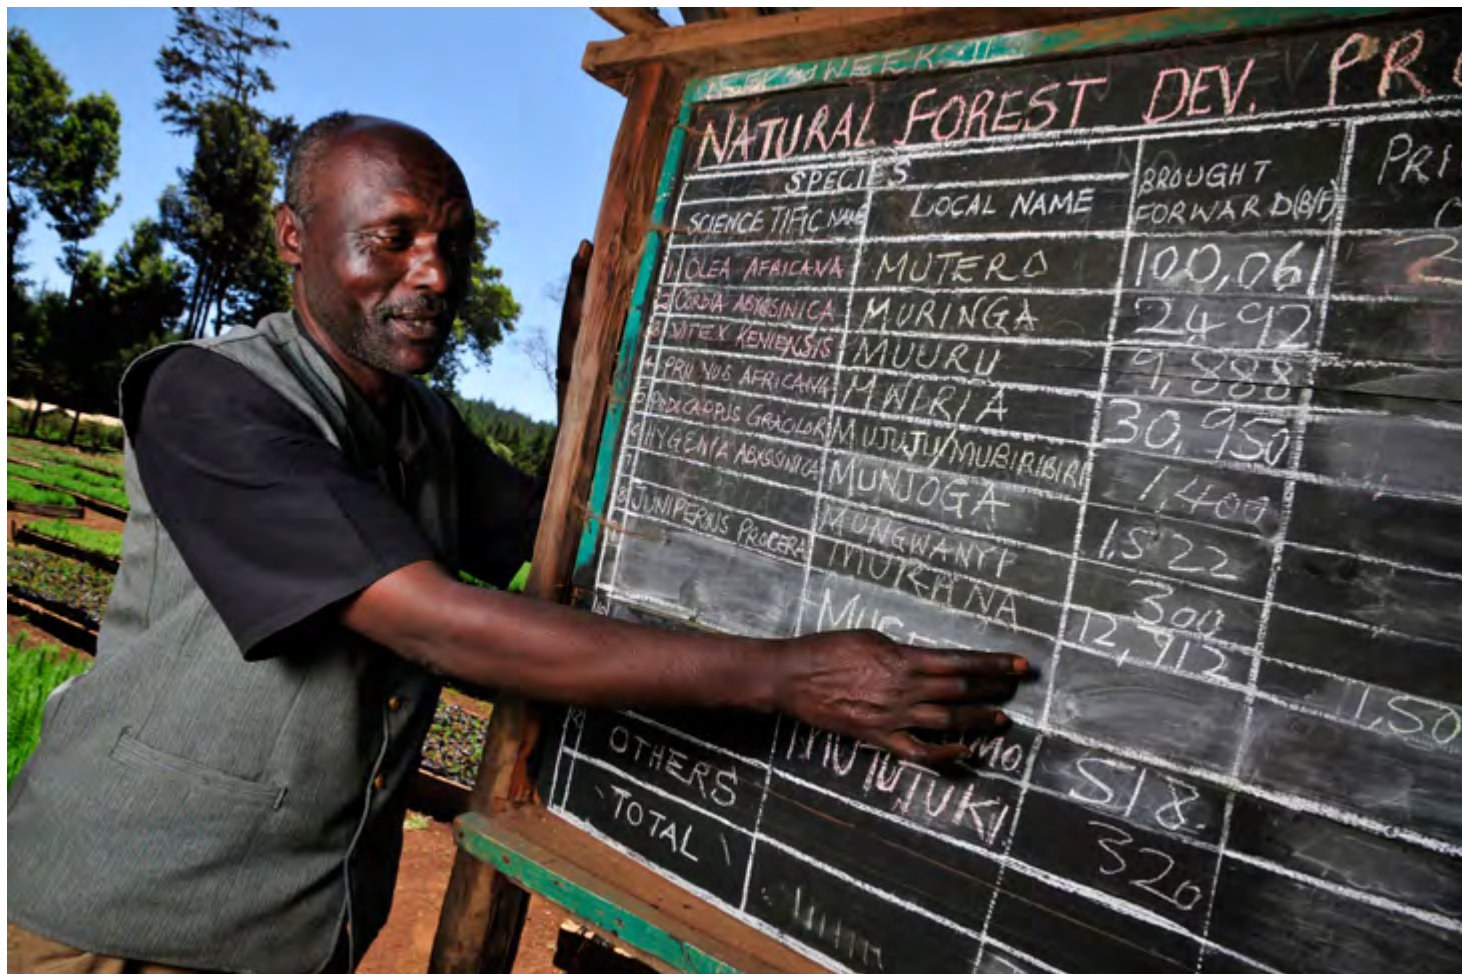 NATURAL FOREST DEV. PR
SPECIES
SCIENCETIFIC NAME LOCAL NAME BROUGHT FORWARD(B/F) PRI
1. OLEA AFRICANA MUTERO 100,061 2
2 CORDIA ABYSSINICA MURINGA 24,92
3 VITEX KENIENSIS MUURU 9,888
4 PRUNUS AFRICANA MWDRIA 30,950
5 PODOCARPUS GRACILOR MUJUJU/MUBIRIBIRI 1400
6 HYGENIA ABYSSINICA MUNJOGA 1,522
7 MUNGWANYF 300
8 JUNIPERUS PROCERA MUKRANA 12,912 1,50
MO. 518.
OTHERS MUTUTUKI 320
TOTAL